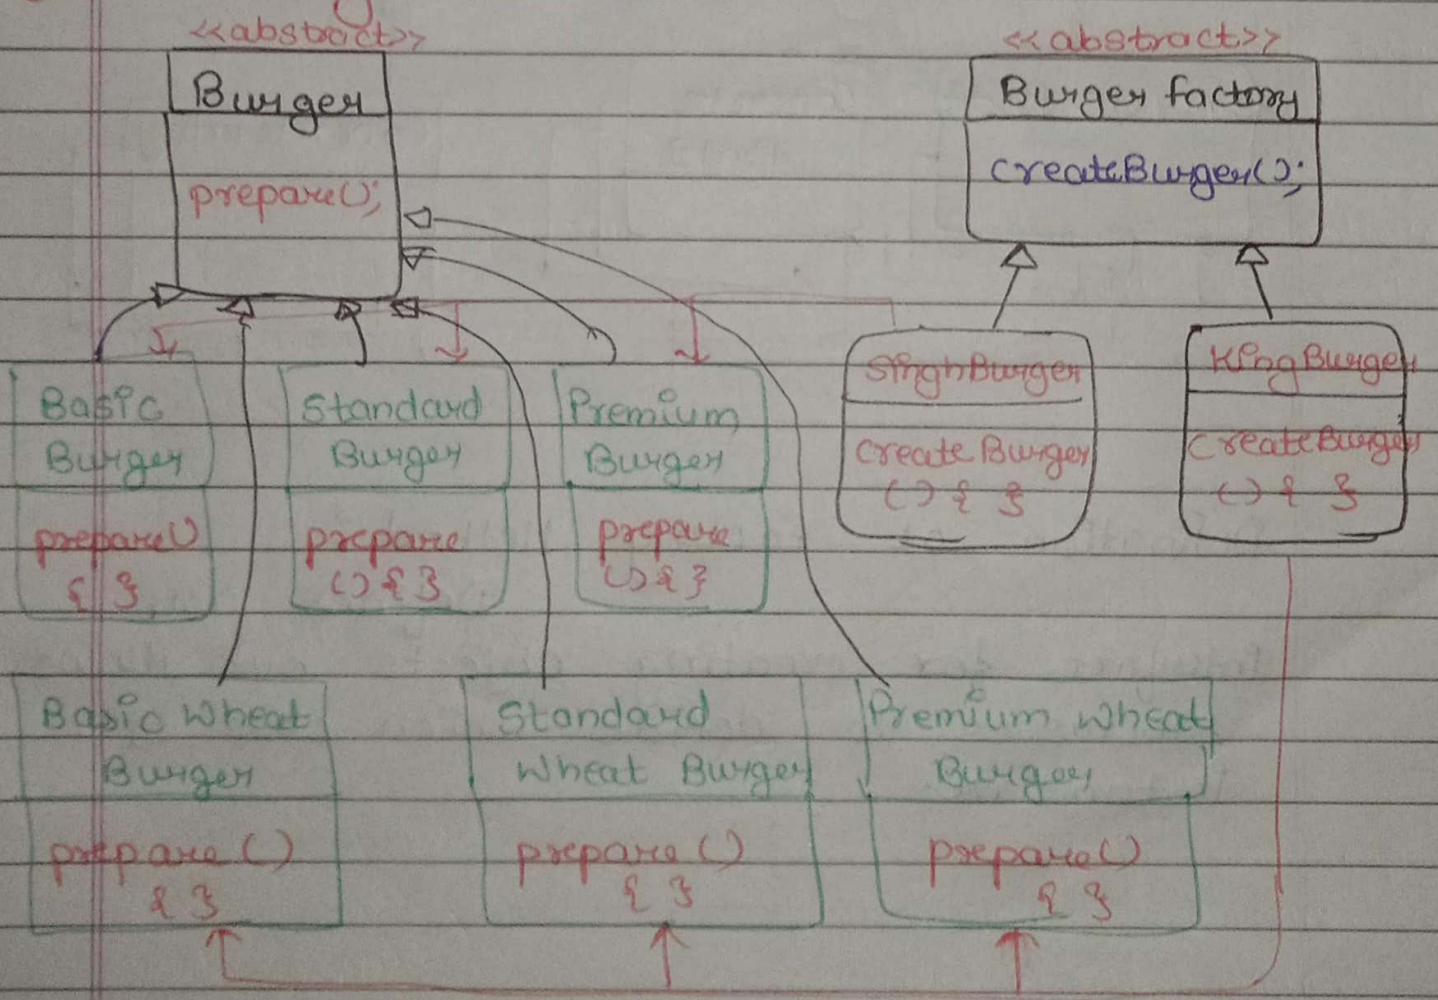 <<abstract>>
Burger
prepare();
<<abstract>>
Burger factory
createBurger();
Basic
Burger
prepare()
{ }
Standard
Burger
prepare
() { }
Premium
Burger
prepare
() { }
SinghBurger
Create Burger
() { }
KingBurger
CreateBurger
() { }
Basic Wheat
Burger
prepare ()
{ }
Standard
Wheat Burger
prepare ()
{ }
Premium Wheat
Burger
prepare()
{ }